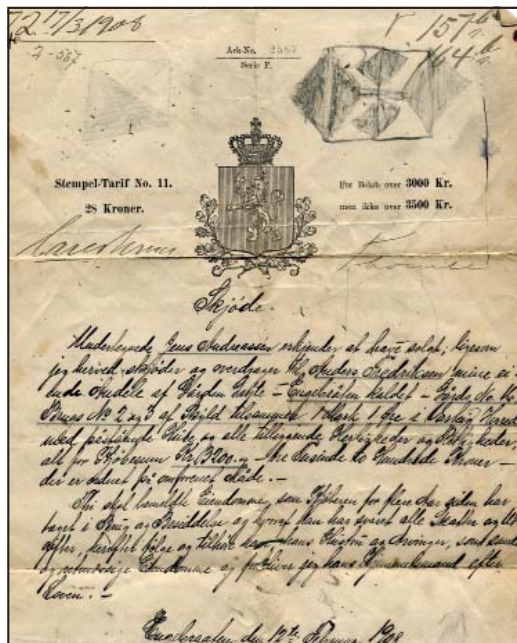 72 17/3 1908
2-587
157 b
164 b
Ark-No. 2587
Serie F.
Stempel-Tarif No. 11.
28 Kroner.
For Beløb over 3000 Kr.
men ikke over 3500 Kr.
Skjøde.
Undertegnede Jens Andreassen erkjender at have solgt, ligesom
jeg herved skjøder og overdrager til Anders Fredriksen mine ei-
ende Andele af Gården - Engebråten kaldet - Gårds No
Bruns No 2 og 3 af Skyld tilsammen 1 Mark 1 Øre i Herred
med påstående Huse og alle tilliggende Herligheder og Rettigheder,
alt for Kjøbesum Kr. 3200.- Tre Tusinde to Hundrede Kroner -
der er ordnet på omforenet Måde. -
Thi skal bemeldte Eiendomme, som Kjøberen for flere Aar siden har
taget i Brug og Besiddelse og hvoraf han har svaret alle Skatter og
efter, herefter følge og tilhøre ham, hans Hustru og Arvinger, som
og retmæssige Eiendomme og jeg hans Hjemmelsmand efter
Loven. -
Engebraaten den 12te Februar 1908